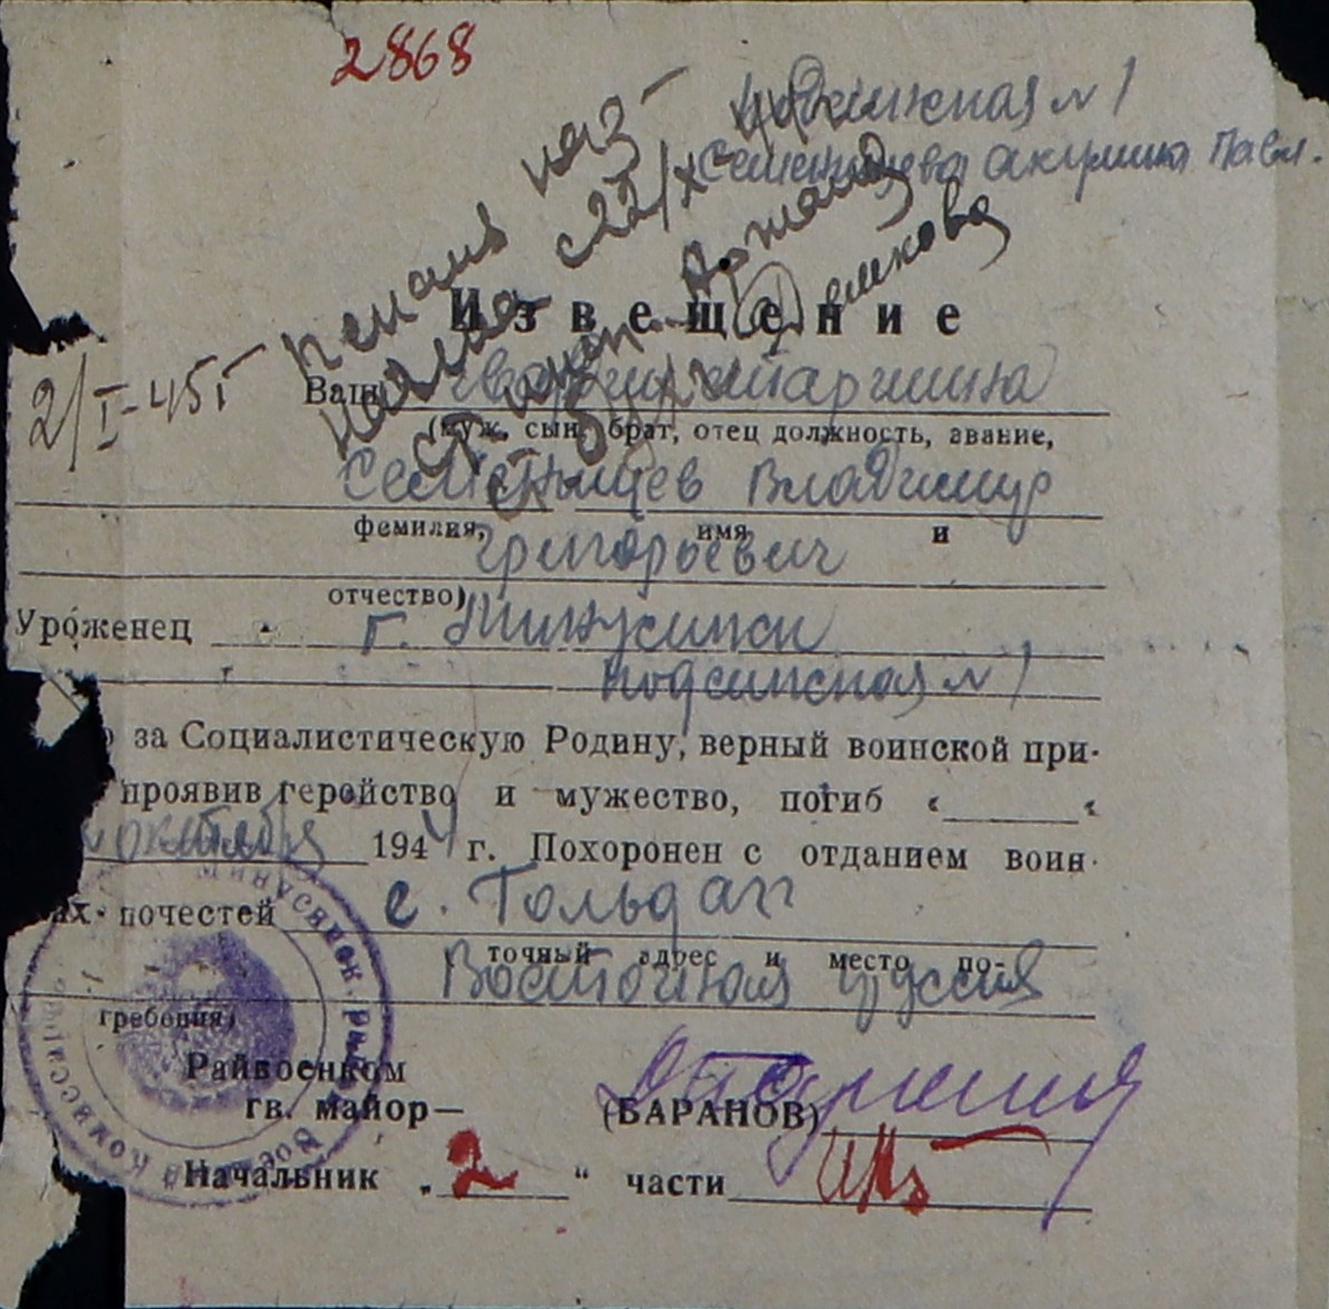 2868
Подсинская № 1
Семенищева Акулина Павл.
Пенсия наз-
с 22/X-44
Извещение
2/I-45г
Ваш гвардии старшина
(муж, сын, брат, отец должность, звание,
Семенищев Владимир
фамилия, имя и
Григорьевич
отчество)
Уроженец г. Минусинск
Подсинская № 1
за Социалистическую Родину, верный воинской при-
проявив геройство и мужество, погиб « «
октября 1944 г. Похоронен с отданием воин-
ких почестей с. Гольдап
точный адрес и место по-
Восточная Пруссия
гребения)
Райвоенком
гв. майор— (БАРАНОВ)
Начальник „2“ части